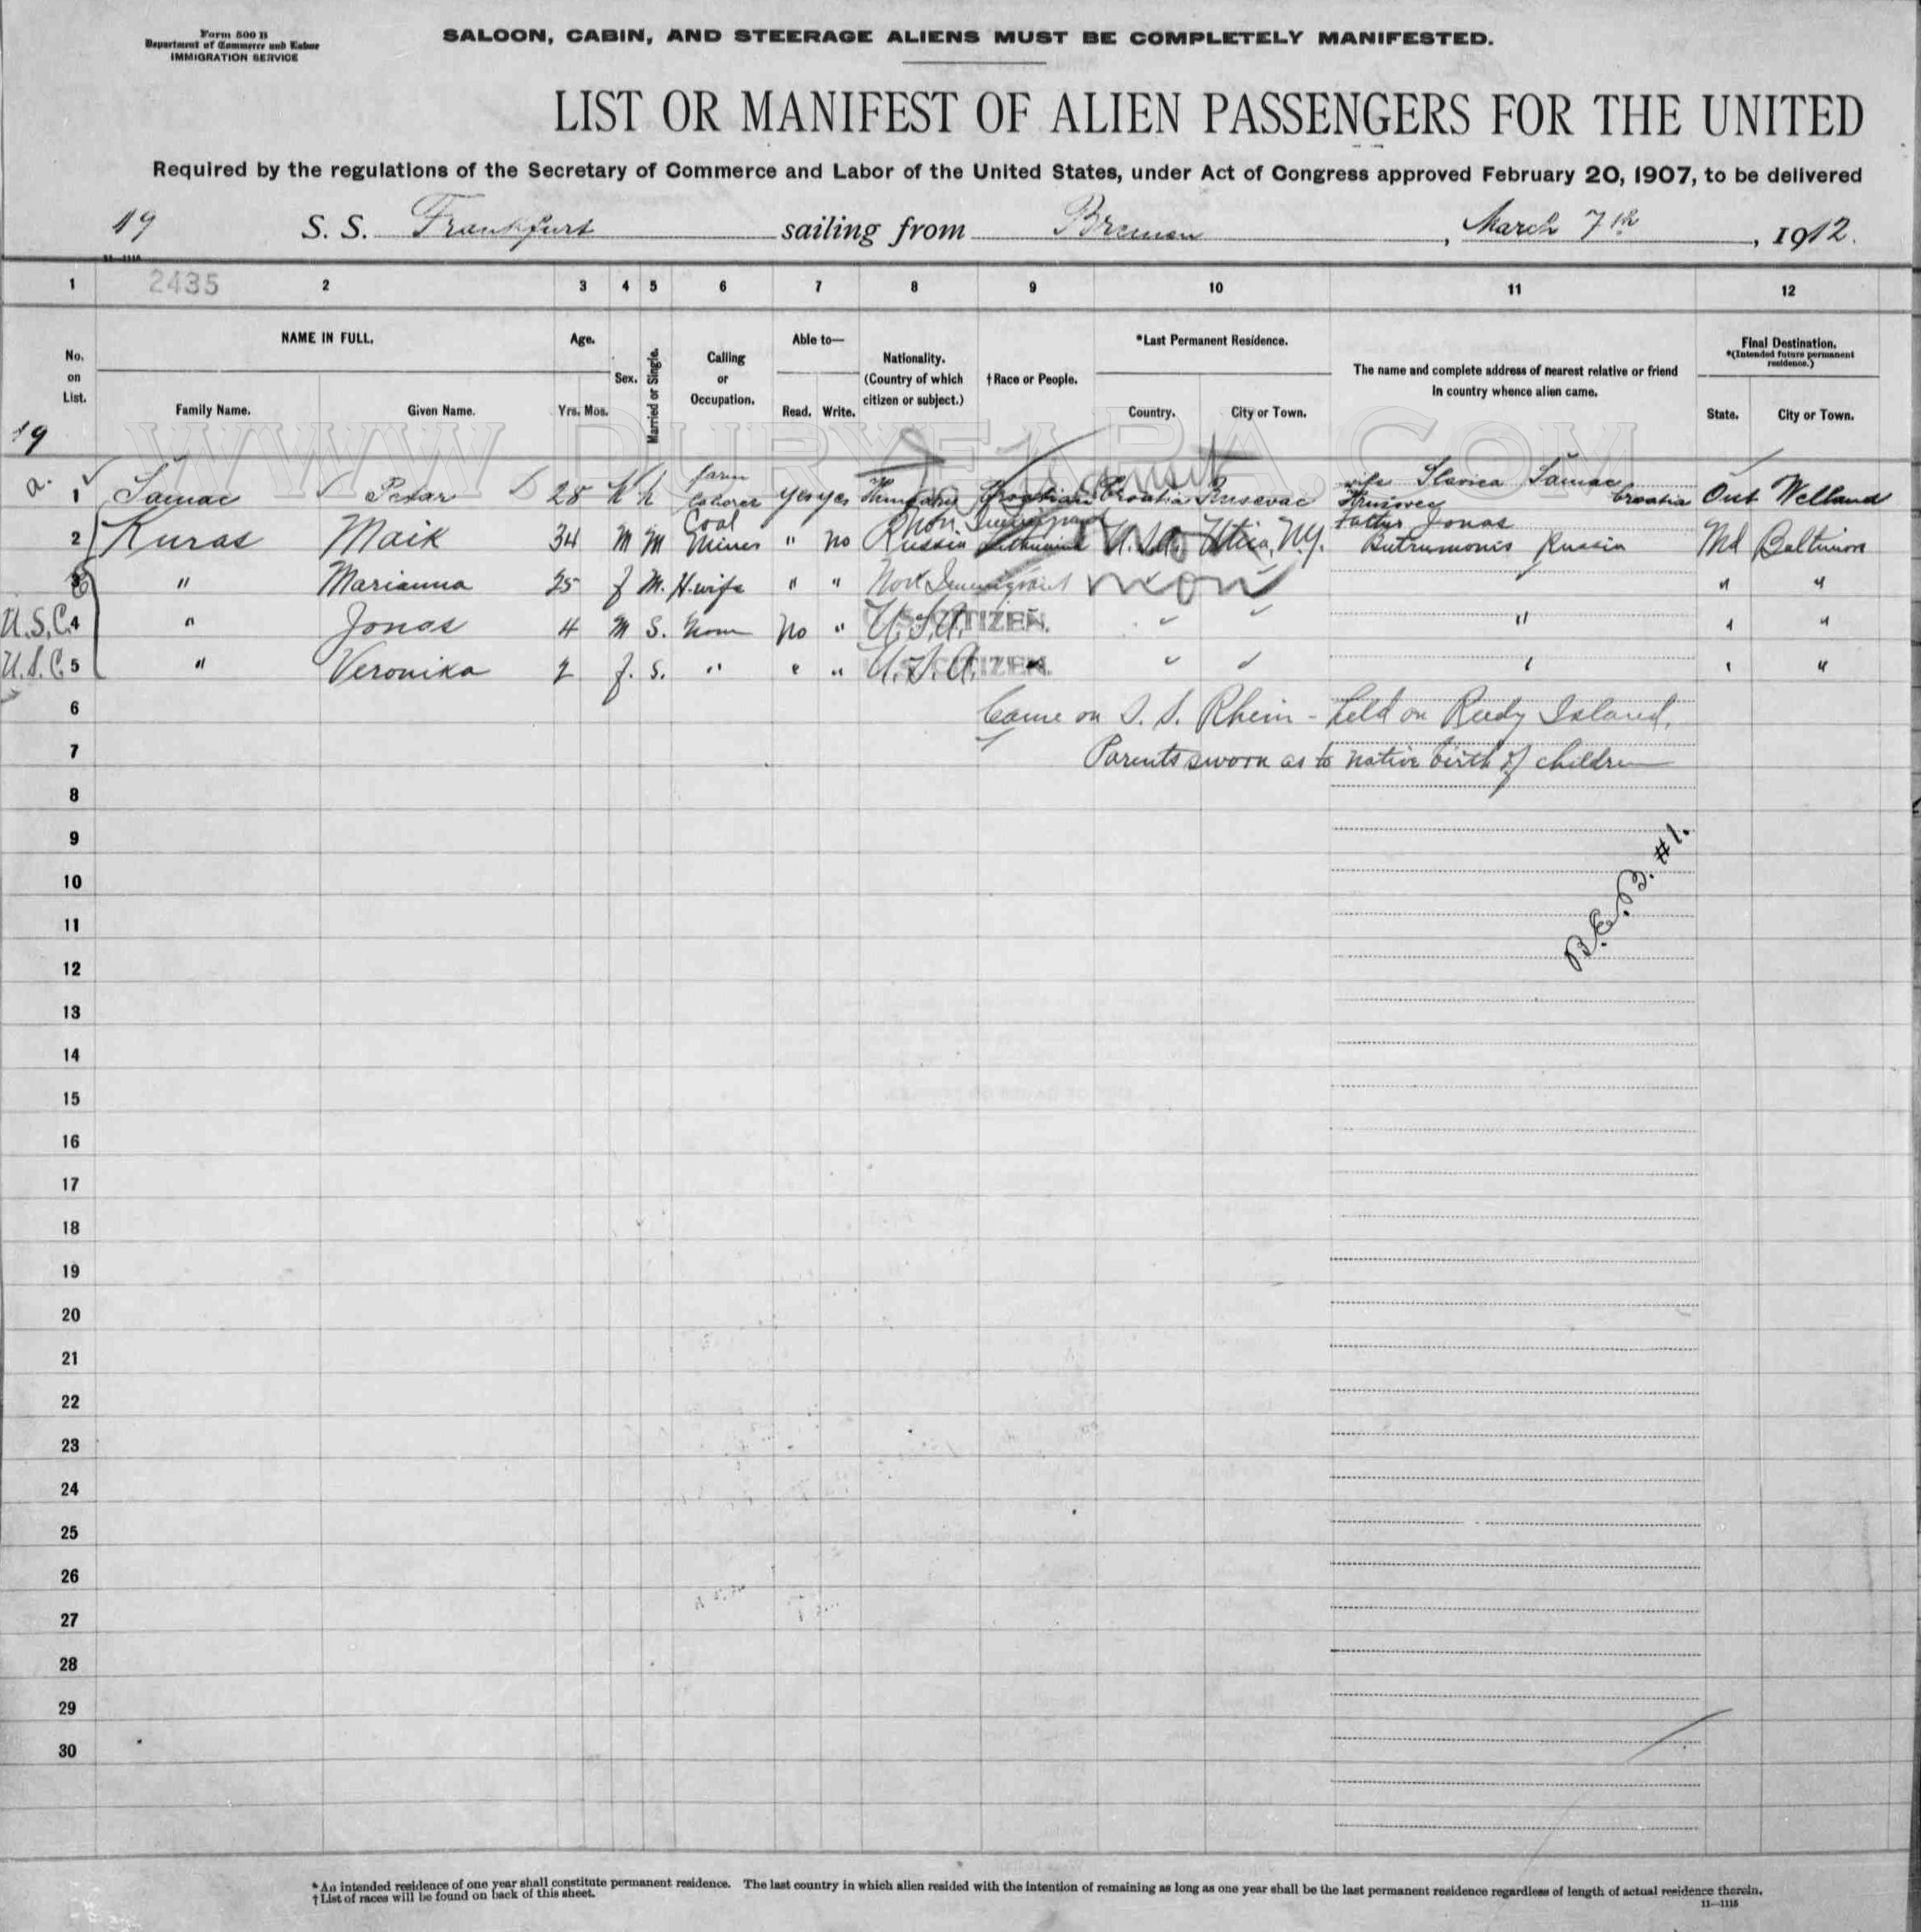 Form 500 B
Department of Commerce and Labor
IMMIGRATION SERVICE
SALOON, CABIN, AND STEERAGE ALIENS MUST BE COMPLETELY MANIFESTED.
LIST OR MANIFEST OF ALIEN PASSENGERS FOR THE UNITED
Required by the regulations of the Secretary of Commerce and Labor of the United States, under Act of Congress approved February 20, 1907, to be delivered
19 S. S. Frankfurt sailing from Bremen, March 7th, 1912.
11—1115
1 2435 2 3 4 5 6 7 8 9 10 11 12
No. on List. NAME IN FULL. Family Name. Given Name. Age. Yrs. Mos. Sex. Married or Single. Calling or Occupation. Able to— Read. Write. Nationality. (Country of which citizen or subject.) †Race or People. *Last Permanent Residence. Country. City or Town. The name and complete address of nearest relative or friend in country whence alien came. Final Destination. *(Intended future permanent residence.) State. City or Town.
19
WWW.DURYEAPA.COM
Transit
a. 1 Samac Petar 28 farm laborer yes yes Hungary Croatian Croatia wife Slavica Samac Croatia Ont Welland
2 Kuras Maik 34 M M Coal Miner " no Russia Non Immigrant Lithuania U.S.A. Utica, N.Y. father Jonas Butrumonis Russia Md Baltimore
3 " Marianna 25 f M. H.wife " " Non Immigrant non " "
U.S.C. 4 " Jonas 4 M S. None No " U.S.A. U.S. CITIZEN. " " "
U.S.C. 5 " Veronika 2 f. S. " " " U.S.A. U.S. CITIZEN. " " "
6 Came on S. S. Rhein - held on Reedy Island.
7 Parents sworn as to native birth of children
8
9
10
B.E.B. #1.
11
12
13
14
15
16
17
18
19
20
21
22
23
24
25
26
27
28
29
30
* An intended residence of one year shall constitute permanent residence. The last country in which alien resided with the intention of remaining as long as one year shall be the last permanent residence regardless of length of actual residence therein.
† List of races will be found on back of this sheet.
11—1115